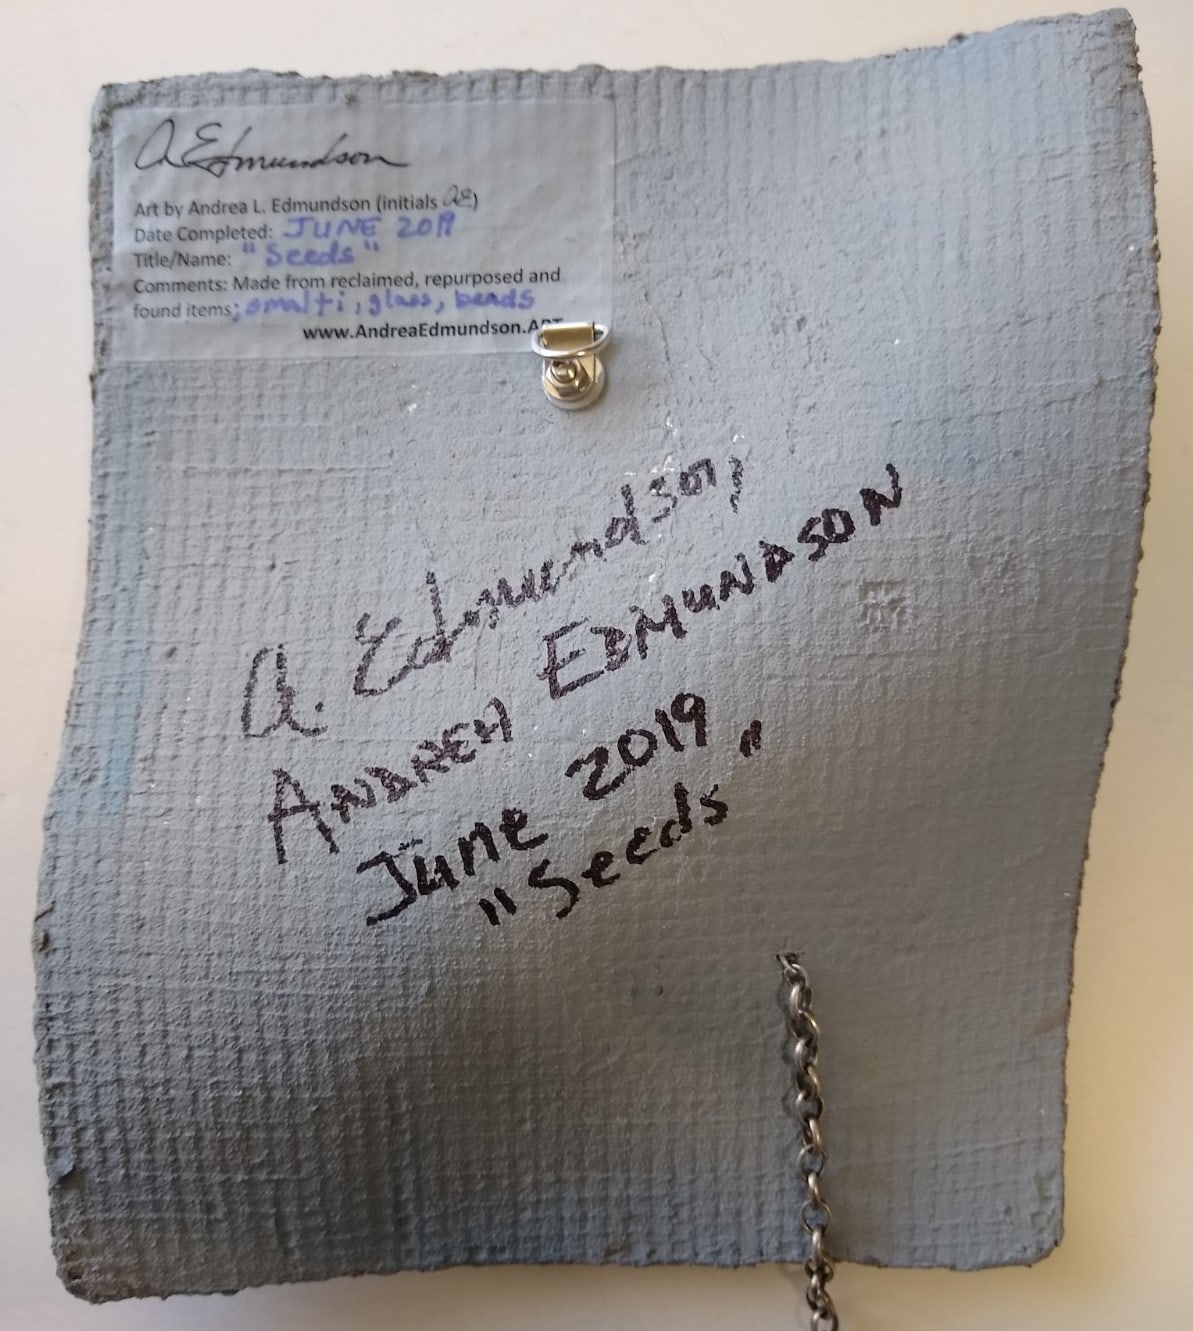 A Edmundson
Art by Andrea L. Edmundson (initials ae)
Date Completed: JUNE 2019
Title/Name: "Seeds"
Comments: Made from reclaimed, repurposed and
found items; smalti, glass, beads
www.AndreaEdmundson.ART
A. Edmundson,
ANDREA EDMUNDSON
June 2019
"Seeds"